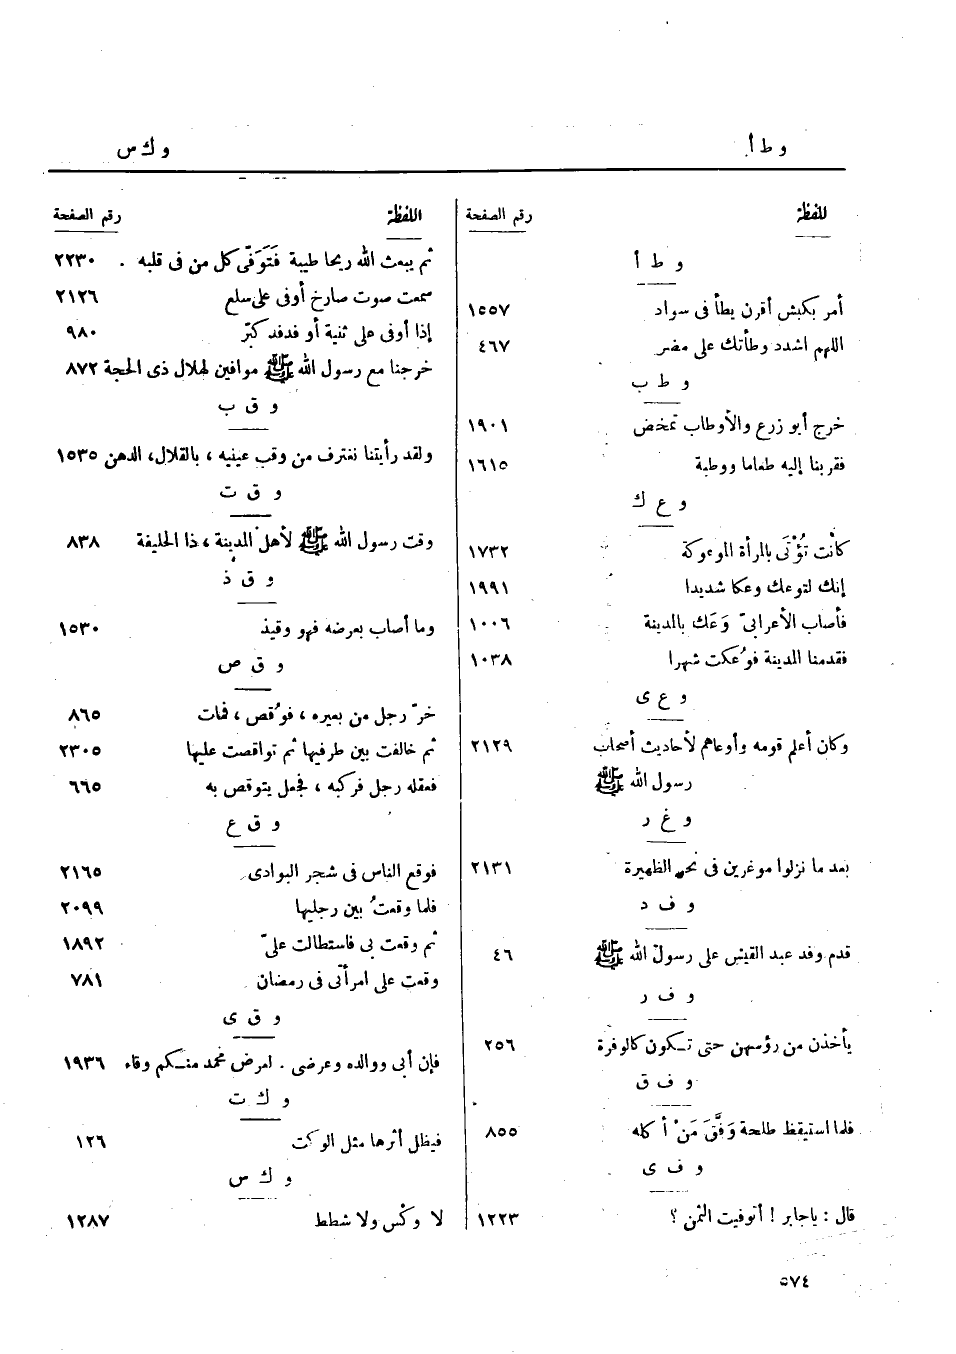 و ط أ
و ك س
للفظة رقم الصفحة
و ط أ
أمر بكبش أقرن يطأ فى سواد ١٥٥٧
اللهم اشدد وطأتك على مضر ٤٦٧
و ط ب
خرج أبو زرع والأوطاب تمخض ١٩٠١
فقربنا إليه طعاما ووطبة ١٦١٥
و ع ك
كانْت تُؤْتَى بالمرأة الموعوكة ١٧٣٢
إنك لتوعك وعكا شديدا ١٩٩١
فأصاب الأعرابىّ وَعَك بالمدينة ١٠٠٦
فقدمنا المدينة فوُعكت شهرا ١٠٣٨
و ع ى
وكان أعلم قومه وأوعاهم لأحاديث أصحاب ٢١٢٩
رسول الله ﷺ
و غ ر
بعد ما نزلوا موغرين فى نحر الظهيرة ٢١٣١
و ف د
قدم وفد عبد القيس على رسول الله ﷺ ٤٦
و ف ر
يأخذن من رؤسهن حتى تكون كالوفرة ٢٥٦
و ف ق
فلما استيقظ طلحة وَفَّقَ مَنْ أكله ٨٥٥
و ف ى
قال : ياجابر ! أتوفيت الثمن ؟ ١٢٢٣
اللفظة رقم الصفحة
ثم يبعث الله ريحا طيبة فَتَوَفَّى كل من فى قلبه . ٢٢٣٠
سمعت صوت صارخ أوفى على سلع ٢١٢٦
إذا أوفى على ثنية أو فدفد كبّر ٩٨٠
خرجنا مع رسول الله ﷺ موافين لهلال ذى الحجة ٨٧٢
و ق ب
ولقد رأيتنا نغترف من وقب عينيه ، بالقلال، الدهن ١٥٣٥
و ق ت
وقت رسول الله ﷺ لأهل المدينة ، ذا الحليفة ٨٣٨
و ق ذ
وما أصاب بعرضه فهو وقيذ ١٥٣٠
و ق ص
خرّ رجل من بعيره ، فوُقص ، فمات ٨٦٥
ثم خالفت بين طرفيها ثم تواقصت عليها ٢٣٠٥
فعقله رجل فركبه ، فجعل يتوقص به ٦٦٥
و ق ع
فوقع الناس فى شجر البوادى ٢١٦٥
فلما وقعتُ بين رجليها ٢٠٩٩
ثم وقعت بى فاستطالت علىّ ١٨٩٢
وقعت على امرأتى فى رمضان ٧٨١
و ق ى
فإن أبى ووالده وعرضى . لعرض محمد منكم وقاء ١٩٣٦
و ك ت
فيظل أثرها مثل الوكت ١٢٦
و ك س
لا وكْس ولا شطط ١٢٨٧
٥٧٤